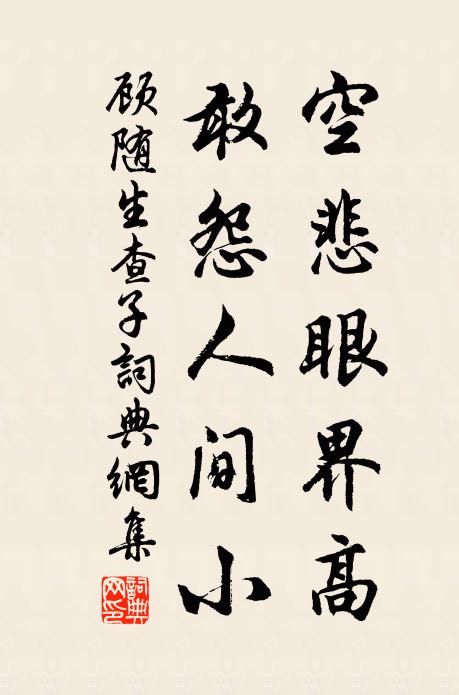 空悲眼界高
敢怨人间小
顾随生查子詞典網集
詞典网印